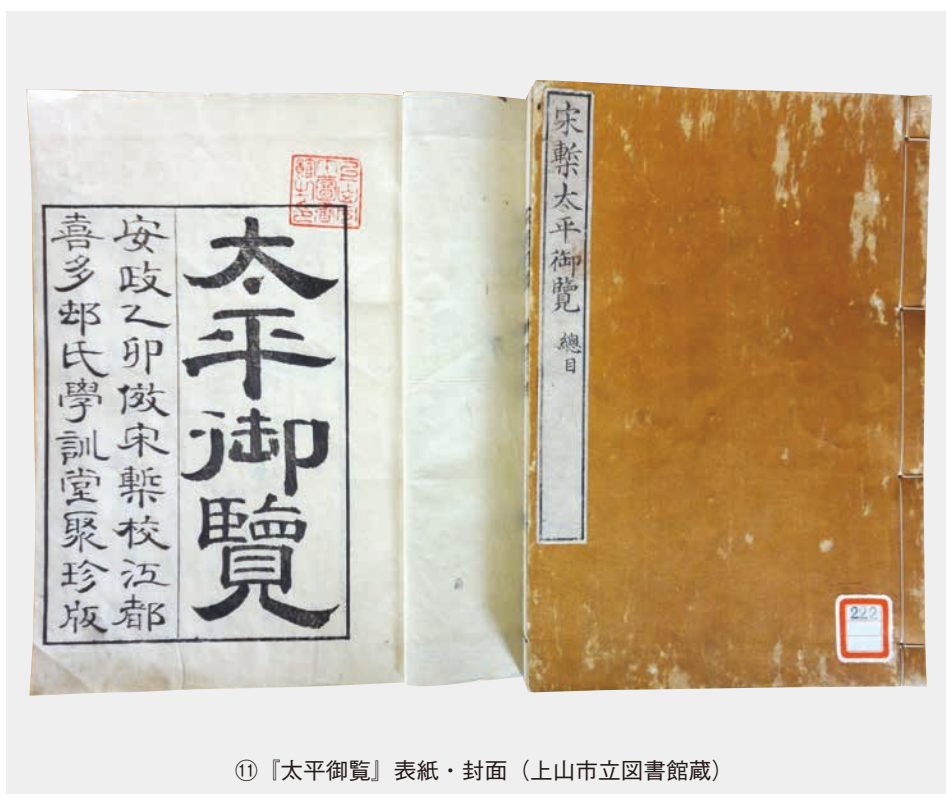 宋槧太平御覽 總目
222
太平御覽
安政乙卯倣宋槧校江都
喜多邨氏學訓堂聚珍版
⑪『太平御覧』表紙・封面（上山市立図書館蔵）